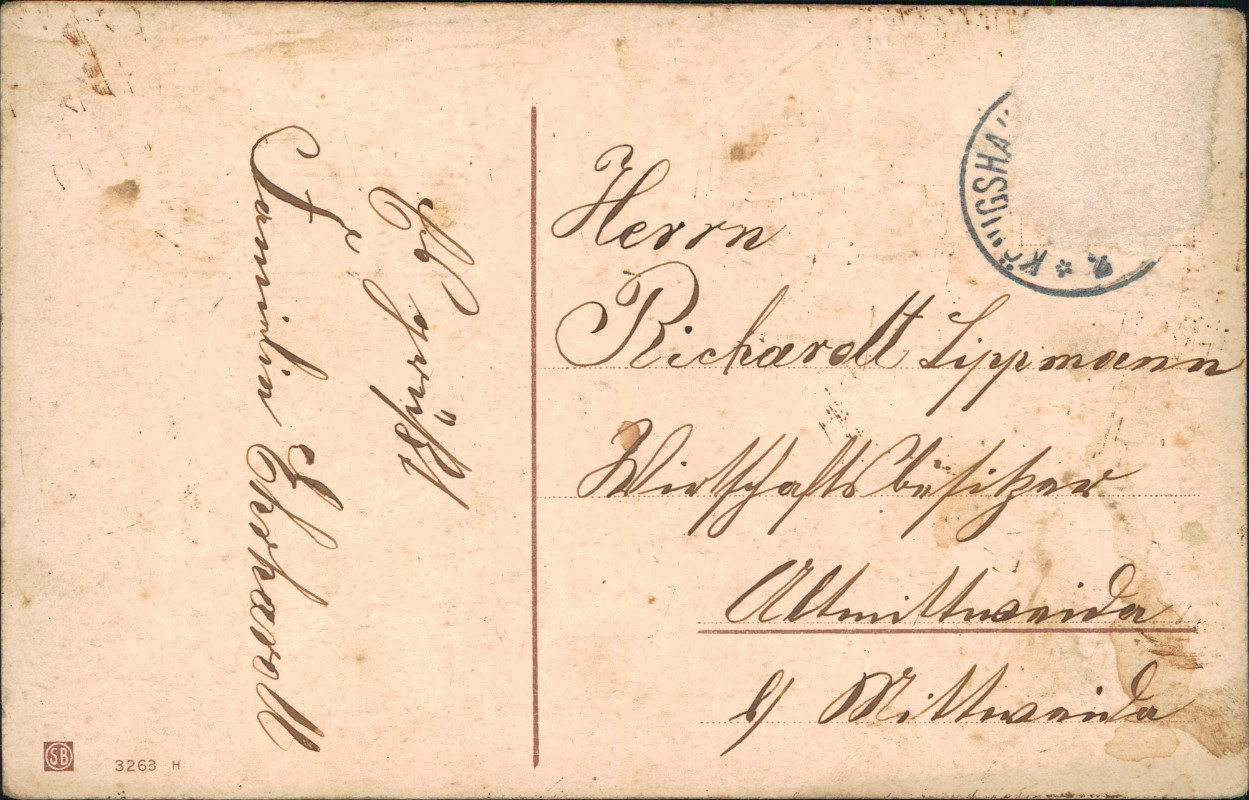 Es grüßt
Familie Ehrhardt
Herrn
Richardt Lippmann
Wirtschaftsbesitzer
Altmittweida
b/ Mittweida
KÖNIGSHA
SB
3263 H